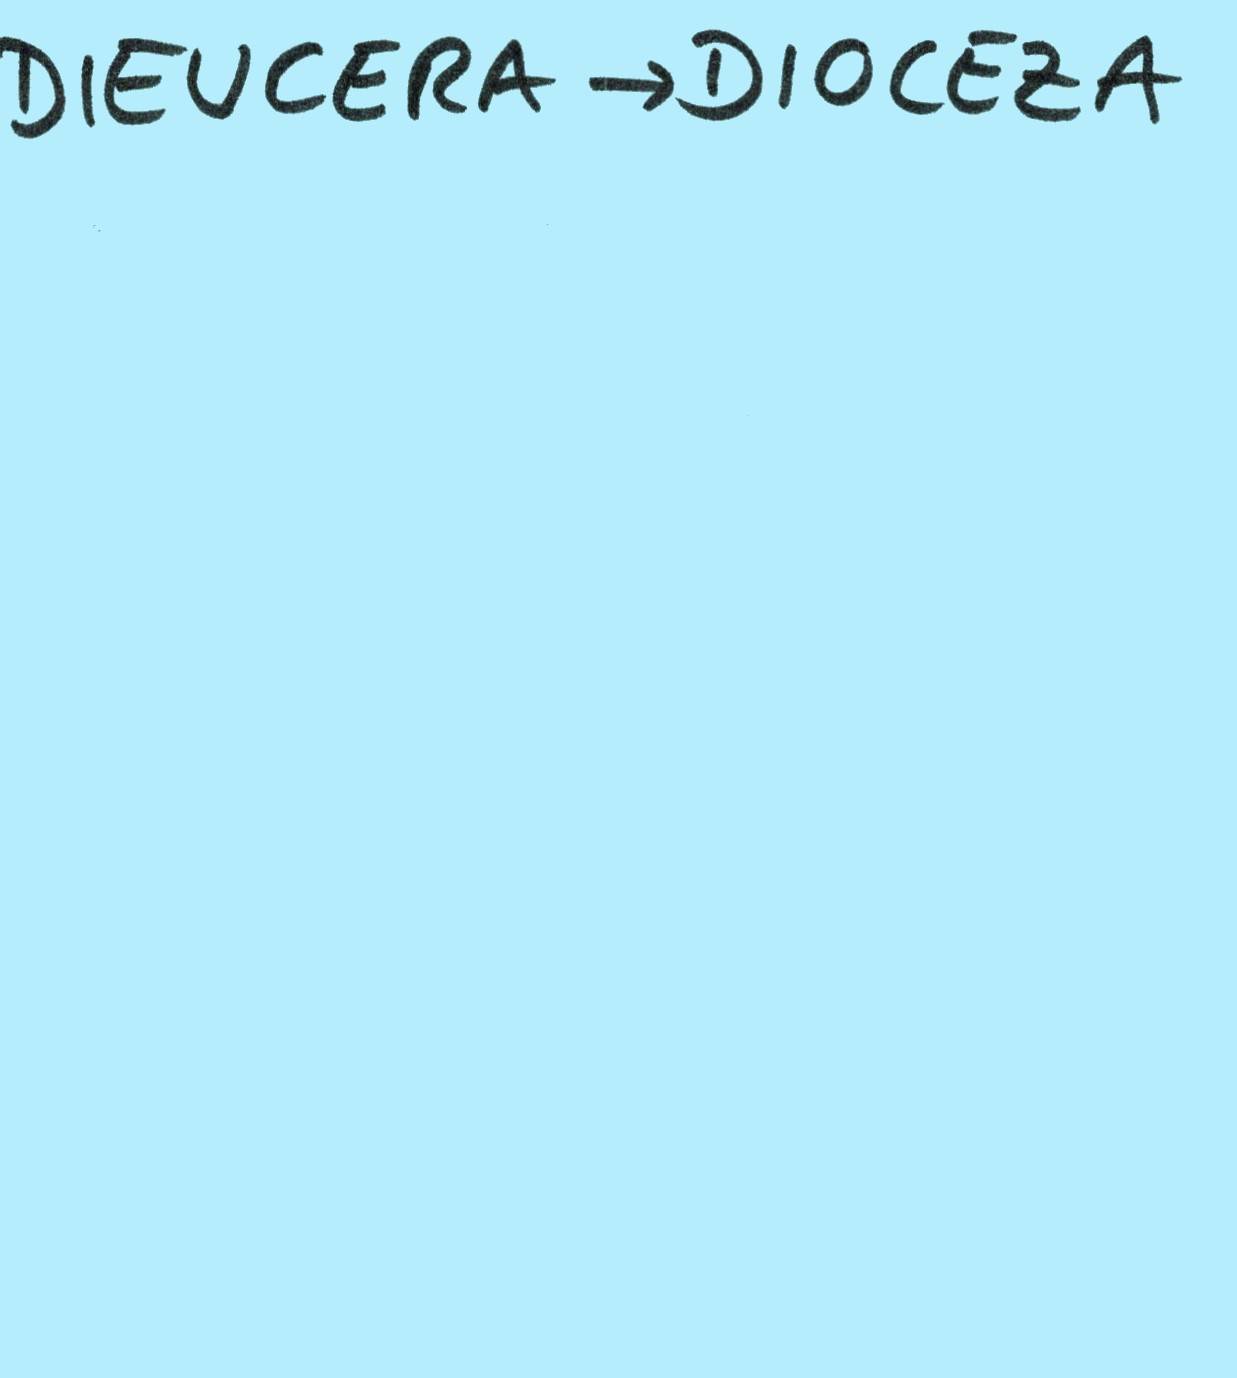 DIEUCERA → DIOCEZA